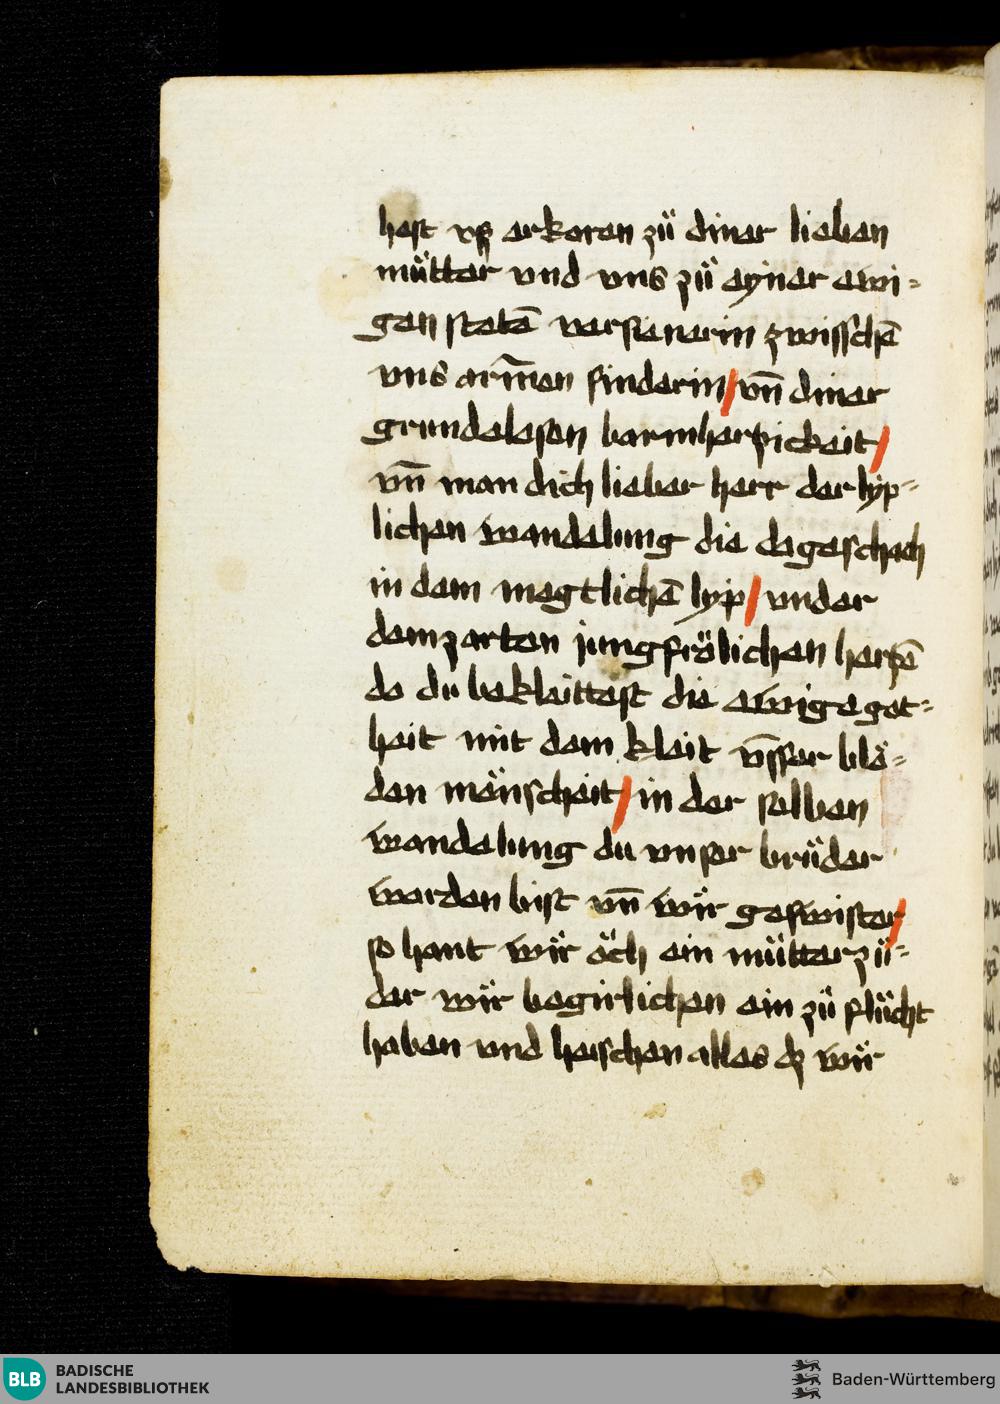 hast vß erkoren zuͤ diner lieben
muͤtter vnd vns zuͤ ayner ewi⸗
gen stetē versienerin zwisschē
vns arm̄en sinderin / vn̄ diner
grundelesen barmherzickeit /
vn̄ man dich lieber herr der lyp⸗
lichen wandelung die da geschach
in dem megtlichē lyp / vnder
dem zarten jungfroͤlichen herzē
da du bekleittest die ewige got⸗
heit mit dem kleit v̄sser bloͤ⸗
den mänscheit / in der selben
wandelung du vnser bruͤder
worden bist vn̄ wir̈ geswister /
so hant wir̈ oͤch ein muͤtter zuͤ⸗
der wir̈ begirlichen ein zuͤ fluͤcht
haben vnd heischen alles dz wir̈
BLB
BADISCHE
LANDESBIBLIOTHEK
Baden-Württemberg